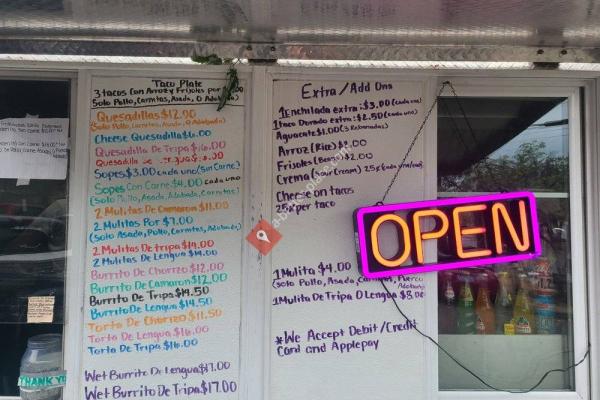 Taco Plate
3 tacos con Arroz y Frijoles por
Solo Pollo, Carnitas, Asada, O Adobada
Quesadillas $12.00
(Solo Pollo, Carnitas, Asada, O Adobada)
Cheese Quesadilla $6.00
Quesadilla De Tripa $16.00
Quesadilla De
Sopes $3.00 cada uno (Sin Carne)
Sopes Con Carne $4.00 cada uno
(Solo Pollo, Asada, Adobada, Carnitas)
2 Mulitas De Camaron $11.00
2 Mulitas Por $7.00
(Solo Asada, Pollo, Carnitas, Adobada)
2 Mulitas De tripa $14.00
2 Mulitas De Lengua $14.00
Burrito De Chorizo $12.00
Burrito De Camaron $12.00
Burrito De Tripa $14.50
Burrito De Lengua $14.50
Torta De Chorizo $11.50
Torta De Lengua $16.00
Torta De Tripa $16.00
Wet Burrito De Lengua $17.00
Wet Burrito De Tripa $17.00
THANK YOU
Extra/Add Ons
1 Enchilada extra: $3.00 (cada una)
1 taco Dorado extra: $2.50 (cada uno)
Aguacate $1.00 (3 Rebanadas)
Arroz (Rice) $1.00
Frijoles (Beans) $2.00
Crema (Sour Cream) 25¢ (cada uno)
Cheese on tacos
25¢ per taco
1 Mulita $4.00
(Solo Pollo, Asada, Carnitas, Puerco
Adobada)
1 Mulita De Tripa O Lengua $8.00
*We Accept Debit/Credit
Card and Applepay
OPEN